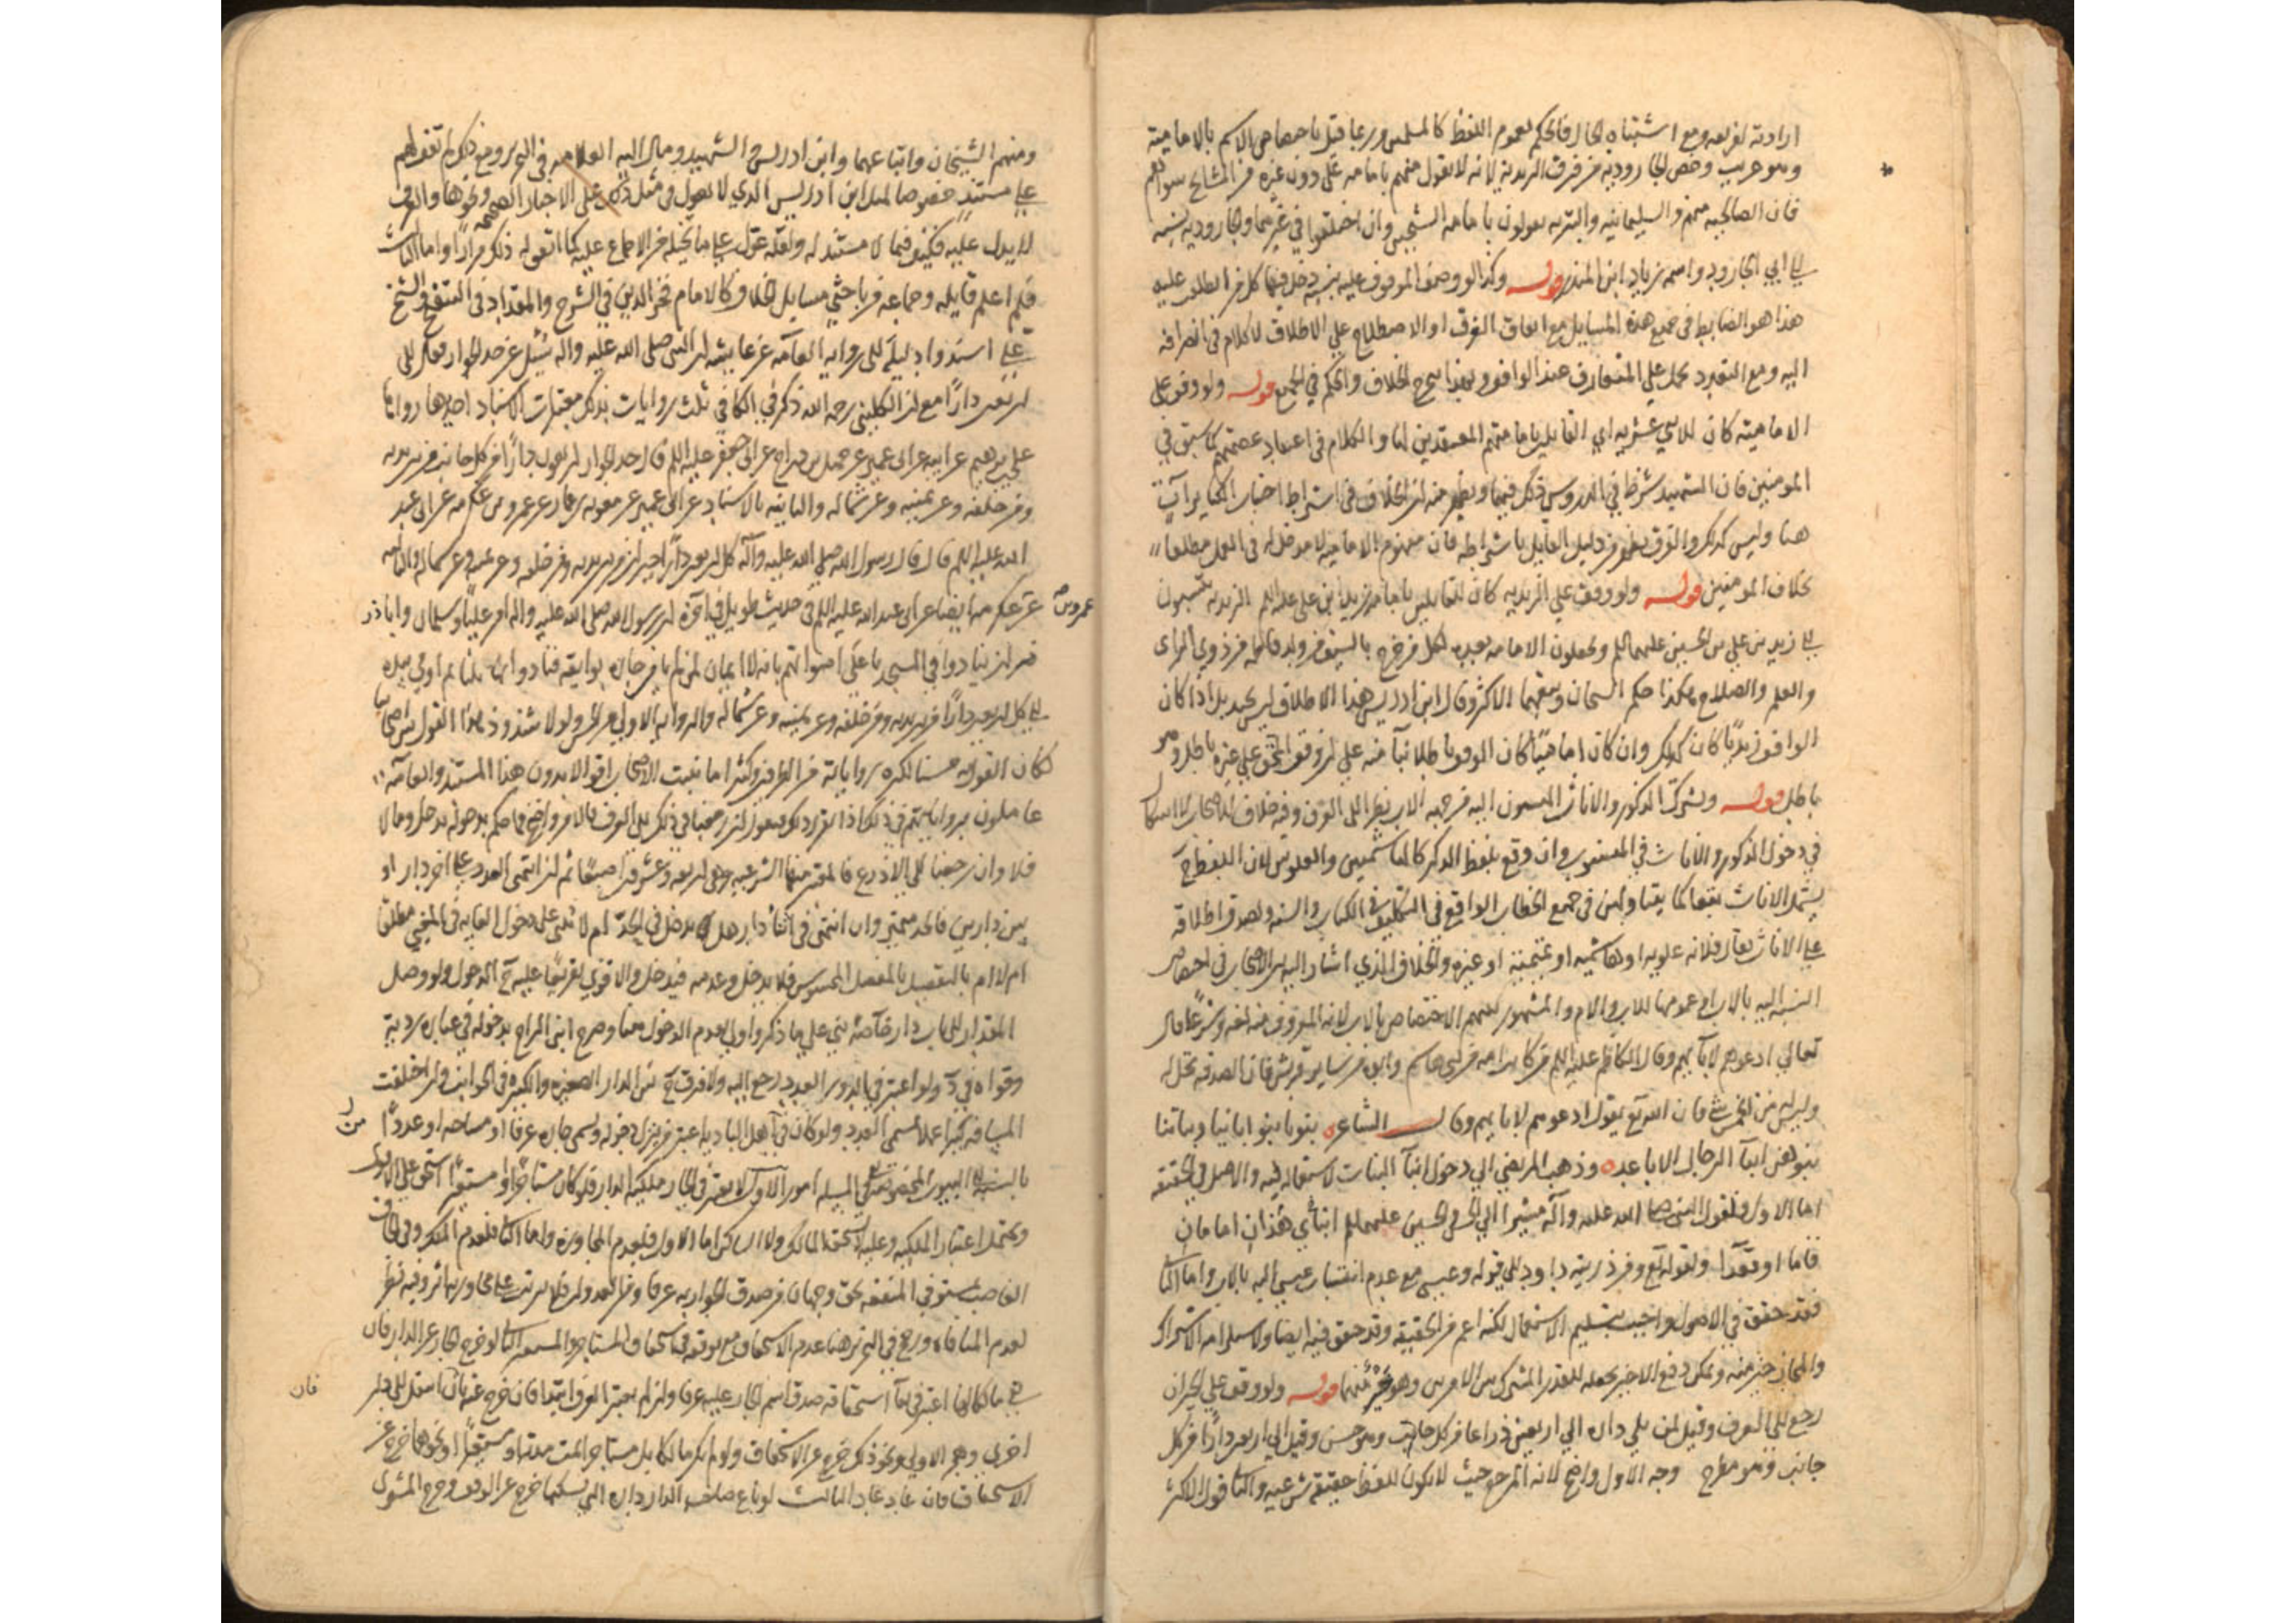 ارادته لفريقه ومع اشتباه الحال فالحكم لعموم اللفظ كالمسلمين وربما قيل باختصاص الاسم بالامامية
وهو غريب وخص الجارودية من فرق الزيدية لانه لا يقول منهم بامامة علي دون غيره من المشايخ سواهم
فان الصالحية منهم والسليمانية والبترية يقولون بامامة الشيخين وان اختلفوا في غيرهما والجارودية نسبة
الى ابي الجارود واسمه زياد ابن المنذر قوله وكذا لو وصف الموقوف عليه بنسبة دخل فيها كل من اطلقت عليه
هذا هو الضابط في جميع هذه المسايل مع اتفاق العرف او الاصطلاح علي الاطلاق لا كلام في انصرافه
اليه ومع التعدد يحمل علي المتعارف عند الواقف وبهذا يسمح الخلاف والحكم في الجميع قوله ولو وقف على
الامامية كان للاثني عشرية اي القايلين بامامتهم المعتقدين لها والكلام في اعتبار عصمتهم كما سبق في
المؤمنين فان الشهيد شرط في الدروس ذلك فيها ويظهر منه ان الخلاف في اشتراط اجتناب الكباير آت
هنا وليس كذلك والفرق يظهر من دليل القايل باشتراطه فان مفهوم الامامية لا مدخل له في العمل مطلقا
بخلاف المؤمنين قوله ولو وقف علي الزيدية كان للقايلين بامامة زيد ابن علي عليه السلم الزيدية ينتسبون
الى زيد بن علي بن الحسين عليهما السلم ويجعلون الامامة بعده لكل من خرج بالسيف من ولد فاطمة من ذوي الراى
والعلم والصلاح هكذا حكم الشيخان وتبعهما الاكثر وقال ابن ادريس هذا الاطلاق ليس بجيد بل اذا كان
الواقف زيديا كان كذلك وان كان اماميا كان الوقف باطلا بنآ منه علي ان وقف المحق علي غيره باطل وهو
باطل قوله ويشترك الذكور والاناث المنسوبون اليه من جهة الاب نظرا الى العرف وفيه خلاف للاصحاب لا اشكال
في دخول الذكور والاناث في المنسوب وان وقع بلفظ الذكر كالهاشميين والعلويين لان اللفظ ح
يشمل الاناث تبعا كما يتناولهن في جميع الخطاب الواقع في التكليف في الكتاب والسنة ولصدق اطلاقه
على الاناث يقال فلانة علوية او هاشمية او تميمية او غيره والخلاف الذي اشار اليه بين الاصحاب في اختصاص
النسبة اليه بالاب او عمومها للاب والام والمشهور بينهم الاختصاص بالاب لانه المعروف منه لغة وشرعا قال
تعالي ادعوهم لآبآئهم وقال الكاظم عليه السلم من كانت امه من بني هاشم وابوه من ساير قريش فان الصدقة تحل له
وليس له من الخمس شي فان الله تع يقول ادعوهم لابايهم وقال الشاعر بنونا بنو ابنائنا وبناتنا
بنوهن ابنآ الرجال الاباعد وذهب المرتضى الي دخول ابنآ البنات لاستعماله فيه والاصل في الحقيقة
اما الاول فلقول النبي صلى الله عليه وآله مشيرا الي الحسن والحسين عليهما السلم ابناي هذان امامان
قاما او قعدا ولقوله تع ومن ذريته داود الي قوله وعيسى مع عدم انتساب عيسى اليه بالاب واما الثاني
فقد حقق في الاصول واجيب بتسليم الاستعمال لكنه اعم من الحقيقة وقد حقق فيه ايضا ولاستلزامه الاشتراك
والمجاز خير منه ويمكن دفع الاخير بجعله للقدر المشترك بين الامرين وهو خير منهما قوله ولو وقف علي الجيران
رجع الي العرف وقيل لمن يلي داره الي اربعين ذراعا من كل جانب وهو حسن وقيل الي اربعين دارا من كل
جانب وهو مطرح وجه الاول واضح لانه المرجع حيث لا يكون للفظ حقيقة شرعية والثاني قول الاكثر
ومنهم الشيخان واتباعهما وابن ادريس والشهيد ومال اليه العلامة في التحرير ومع ذلك لم نقف لهم
على مستند خصوصا لمثل ابن ادريس الذي لا يعول في مثل ذلك على الاخبار الصحيحة ونحوها والعرف
لا يدل عليه فكيف فيما لا مستند له ولعله عول على ما يخيله من الاجماع عليه كما اتفق له ذلك مرارا واما الثالث
فلم اعلم قايله وجماعة من باحثي مسايل الخلاف كالامام فخر الدين في الشرح والمقداد في التنقيح والشيخ
علي اسندوا دليله الى رواية العامة عن عايشة ان النبي صلى الله عليه واله سئل عن حد الجوار فقال الى
اربعين دارا مع ان الكليني رحمه الله ذكر في الكافي ثلث روايات بذلك معتبرات الاسناد احدها رواها
علي بن ابرهيم عن ابيه عن ابن ابي عمير عن جميل بن دراج عن ابي جعفر عليه السلم قال حد الجوار اربعون دارا من كل جانب من بين يديه
ومن خلفه وعن يمينه وعن شماله والثانية بالاسناد عن ابن ابي عمير عن معوية بن عمار عن عمرو بن عكرمة عن ابي عبد
الله عليه السلم قال قال رسول الله صلى الله عليه وآله كل اربعين دارا جيران من بين يديه ومن خلفه وعن يمينه وعن شماله والثالثة
عمرو بن
عن عكرمة ايضا عن ابي عبد الله عليه السلم في حديث طويل في آخره ان رسول الله صلى الله عليه واله امر عليا وسلمان واباذر
ان ينادوا في المسجد باعلى اصواتهم بانه لا ايمان لمن لم يامن جاره بوايقه فنادوا بها ثلثا ثم اومى بيده
الى كل اربعين دارا من بين يديه ومن خلفه وعن يمينه وعن شماله والرواية الاولى ولولا شذوذ هذا القول بين اصحابنا
لكان القول به حسنا لكثرة رواياته من الطرفين وكثيرا ما يثبت الاصحاب اقوالا بدون هذا المستند والعامة
عاملون برواياتهم في ذلك اذا تقرر ذلك فنقول ان رجعنا في ذلك الى العرف فالامر واضح فما حكم بدخوله يدخل وما لا
فلا وان رجعنا الى الاذرع فالمعتبر منها الشرعية وهي اربعة وعشرون اصبعا ثم ان انتهى العدد على اخر دار او
بين دارين فالحد متميز وان انتهى في اثنا دار هل يدخل في الحد ام لا يبنى على دخول الغاية في المغيى مطلقا
ام لا ام بالتفصيل بالمفصل المحسوس فلا يدخل وعدمه فيدخل والاقوى تفريعا عليه ح الدخول ولو وصل
المقدار الي باب دار خاصة بني علي ما ذكر واولى بعدم الدخول هنا وصرح ابن البراج بدخوله في عبارة ردية
وقواه في ولو اعتبر في الدور العدد رجع اليه ولا فرق ح بين الدار الصغيرة والكبيرة في الجوانب وان اختلفت
المسافة كثيرا عملا بمسمى العدد ولو كان في اهل البادية اعتبر من ينزل حوله ويسمى جاره عرفا او مساحة او عددا
بالنسبة الى البيوت المخصوصة المسئلة امور الاول لا يعتبر في الجار ملكية الدار فلو كان مستاجرا او مستعيرا استحق علي الاقوى
ويحتمل اعتبار الملكية وعليه لا يستحق المالك ولا الساكن اما الاول فلعدم المجاورة واما الثاني فلعدم الملك وفي استحقاق
الغاصب مستوفي المنفعة بحق وجهان من صدق الجوار به عرفا ومن العدوان فلا يترتب على مجاورته اثر وفيه نظر
لعدم المنافاة ورجح في التحرير هنا عدم الاستحقاق مع توقفه في استحقاق المستاجر والمستعير الثاني لو خرج الجار عن الدار فان
فان
بقي مالكا لها اعتبر في بقآ استحقاقه صدق اسم الجار عليه عرفا وان لم يعتبر العرف ابتدا فان خرج عنه بان انتقل الى دار
اخرى وهجر الاولى ونحو ذلك خرج عن الاستحقاق ولو لم يكن مالكا بل مستاجرا تمت مدته او مستعيرا ونحوهما خرج عن
الاستحقاق فان عاد عاد الثالث لو باع صاحب الدار داره التي يسكنها خرج عن الوقف ودخل المشتري